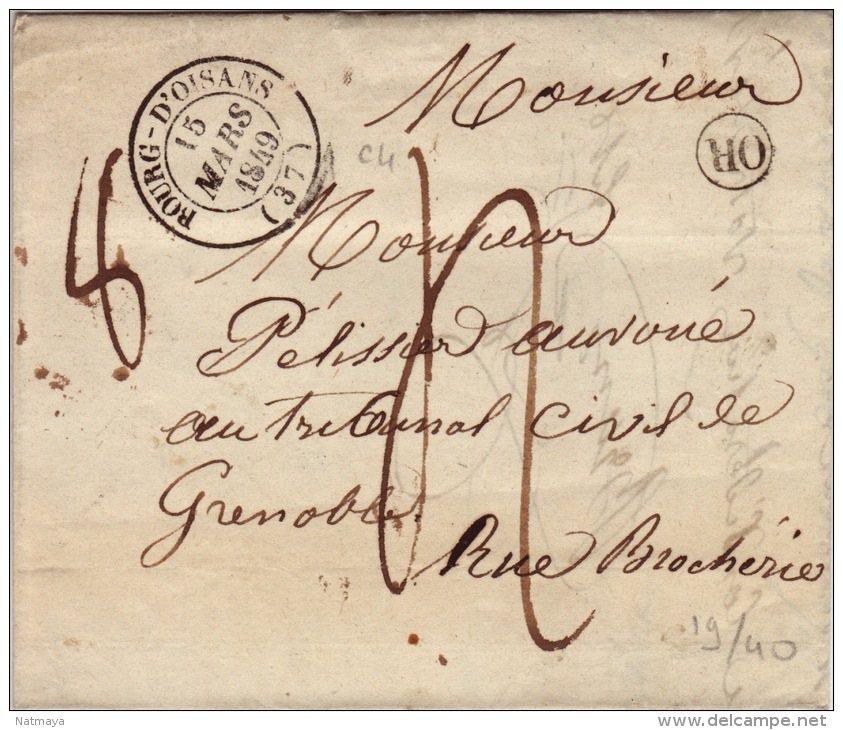 BOURG-D'OISANS
15
MARS
1849
(37)
Monsieur
OR
C4
8
Monsieur
Pélissier auvoué
au tribunal civil de
Grenoble
Rue Brocherie
19/40
Natmaya
www.delcampe.net